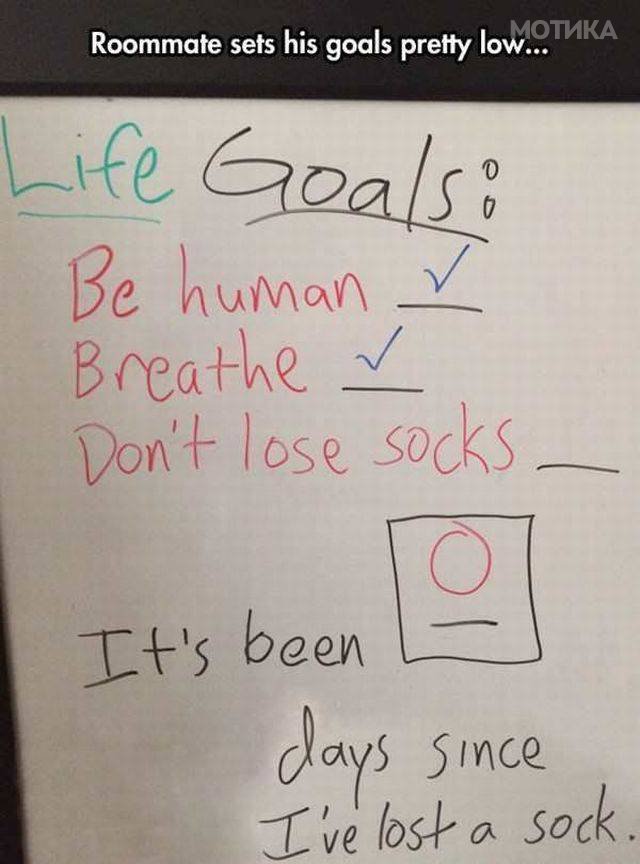 МОТИКА
Roommate sets his goals pretty low...
Life Goals:
Be human ✓
Breathe ✓
Don't lose socks __
It's been 0
days since
I've lost a sock.